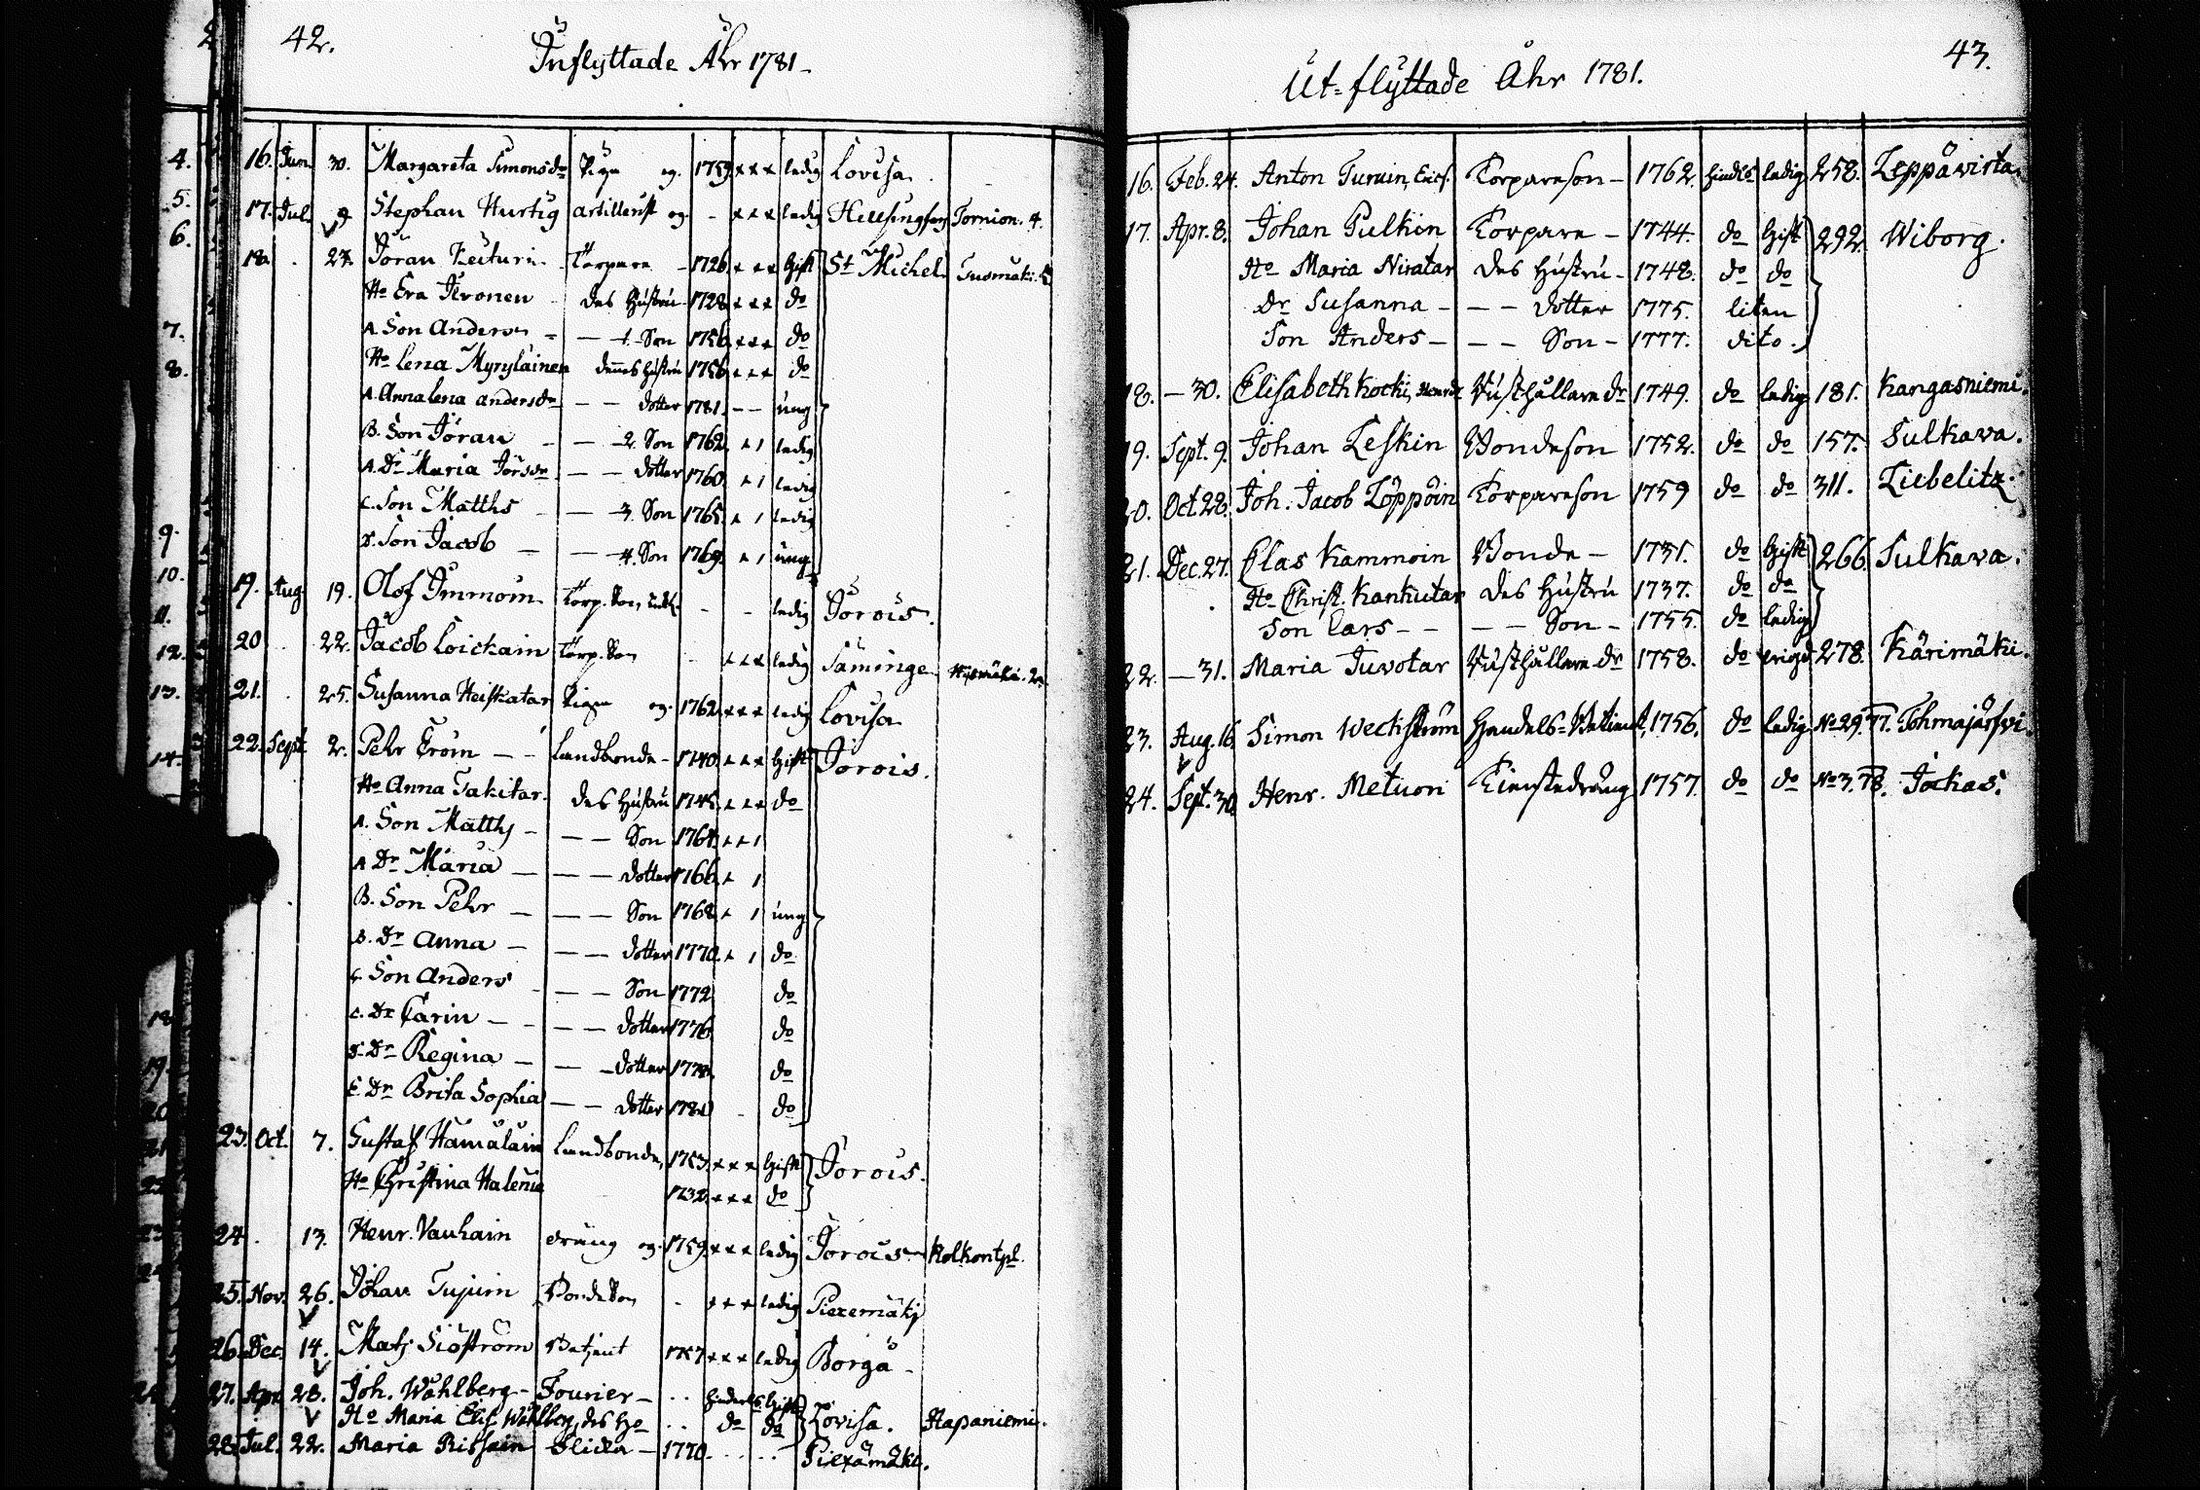 42.
Inflyttade Åhr 1781
16. Jun. 30. Margareta Simonsdr Piga og. 1759 xxx ledig Lovisa
17. Jul. 9 Stephan Hurtig artillerist og - xxx ledig Helsingfors Tornion. 4.
18. . 27. Jöran Keituri Torpare 1726 xxx Gift St Michel
Ho Eva Ilvonen des Hustru 1728 xxx do
A. Son Anders - — 1. Son 1756 xxx do
Ho Lena Myryläinen dennes Hustru 1756 xxx do
A. Annalena andersdr — — dotter 1781. — — ung
B. Son Jöran - — 2. Son 1762. x 1 ledig
A. Dr Maria Jörsdr — — dotter 1760. x 1 ledig
C. Son Matths — 3. Son 1765. x 1 ledig
D. Son Jacob — — 4. Son 1769. x 1 ung
19. Aug 19. Olof Immoin Torp. Son - - ledig Jorois.
20 . 22. Jacob Loickain Torp. Son xxx ledig Säminge
21. . 25. Susanna Heiskatar Pigan og. 1762 xxx ledig Lovisa
22. Sept 2. Pehr Eroin — Landbonde - 1740. xxx Gift Jorois.
Ho Anna Takitar. des Hustru 1745. xxx do
A. Son Matths — — Son 1764. x x 1
A Dr Maria — — — dotter 1766. x 1
B. Son Pehr — — — Son 1768. x 1 ung
B. Dr Anna — — — dotter 1770. x 1 do
C. Son Anders — — Son 1772 do
C. Dr Carin — — — dotter 1776. do
D. Dr Regina — — — dotter 1778. do
E. Dr Brita Sophia — — dotter 1781 - do
23. Oct. 7. Gustaf Hämäläin Landbonde, 1753. xxx Gift Jorois.
Ho Christina Halenia 1732. xxx do
24 . 13. Henr. Vauhain dräng og. 1759. xxx ledig Jorois Kolkontpl.
25. Nov. 26. Johan Tujuin BondeSon - xxx ledig Piexemäkj
26. Dec. 14. Matj Siöström Betjent 1757 xxx ledig Borgå -
27. Apr. 28. Joh. Wåhlberg - Fourier - . . hinderlös Gift
Ho Maria Elis. Wåhlberg, des Ho . . do do Lovisa. Hapaniemi.
28. Jul. 22. Maria Rissain Slickа - 1770. . . . . . Piexämäki.
43.
Ut-flyttade Åhr 1781.
16. Feb. 24. Anton Turuin, Erics. Torpareson — 1762. hindlös ledig 258. Leppävirta.
17. Apr. 8. Johan Pulkin Torpare — 1744. do Gift 292. Wiborg.
Ho Maria Niratar des Hustru - 1748. do do
Dr Susanna — — — dotter 1775. liten
Son Anders — — — Son - 1777. dito.
18. — 30. Elisabeth Kocki, Henrdr Rusthållare dr 1749. do ledig 181. Kangasniemi.
19. Sept. 9. Johan Leskin Bondeson 1752. do do 157. Sulkava.
20. Oct. 28. Joh. Jacob Löppöin Torpareson 1759 do do 311. Liebelitz.
21. Dec. 27. Clas Kammoin Bonde — 1731. do Gift 266. Sulkava.
Ho Christ. Kankutar des Hustru 1737. do do
Son Lars — — — — Son — 1755. do ledig
22. — 31. Maria Juvotar Rusthållare dr 1758. do 278. Kärimäki.
23. Aug. 16. Simon Weckström Handels-Betient, 1756. do ledig No 29. 77. Tohmajärfvi.
24. Sept. 30. Henr. Metuon Tienstedräng 1757. do do No 3. 78. Jockas.